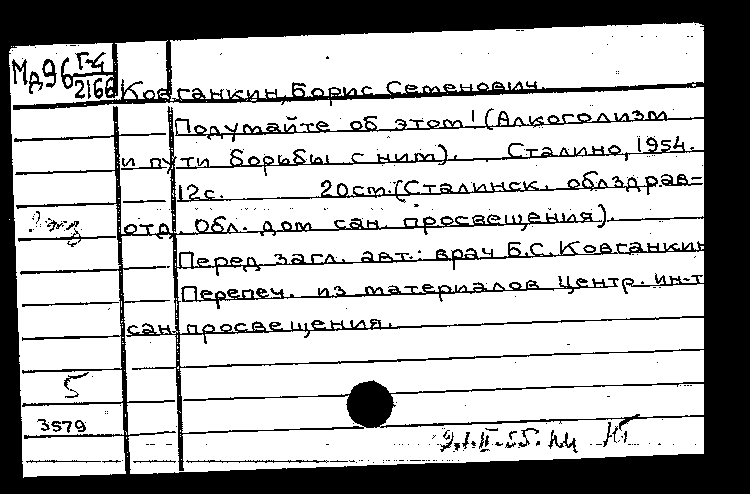 Мд96 Г-4
2166
Ковганкин, Борис Семенович.
Подумайте об этом! (Алкоголизм
и пути борьбы с ним). Сталино, 1954.
12с. 20cm. (Сталинск. облздрав=
отд. Обл. дом сан. просвещения).
2 экз
Перед загл. авт.: врач Б.С. Ковганкин
Перепеч. из материалов Центр. ин-т
сан. просвещения.
5
3579